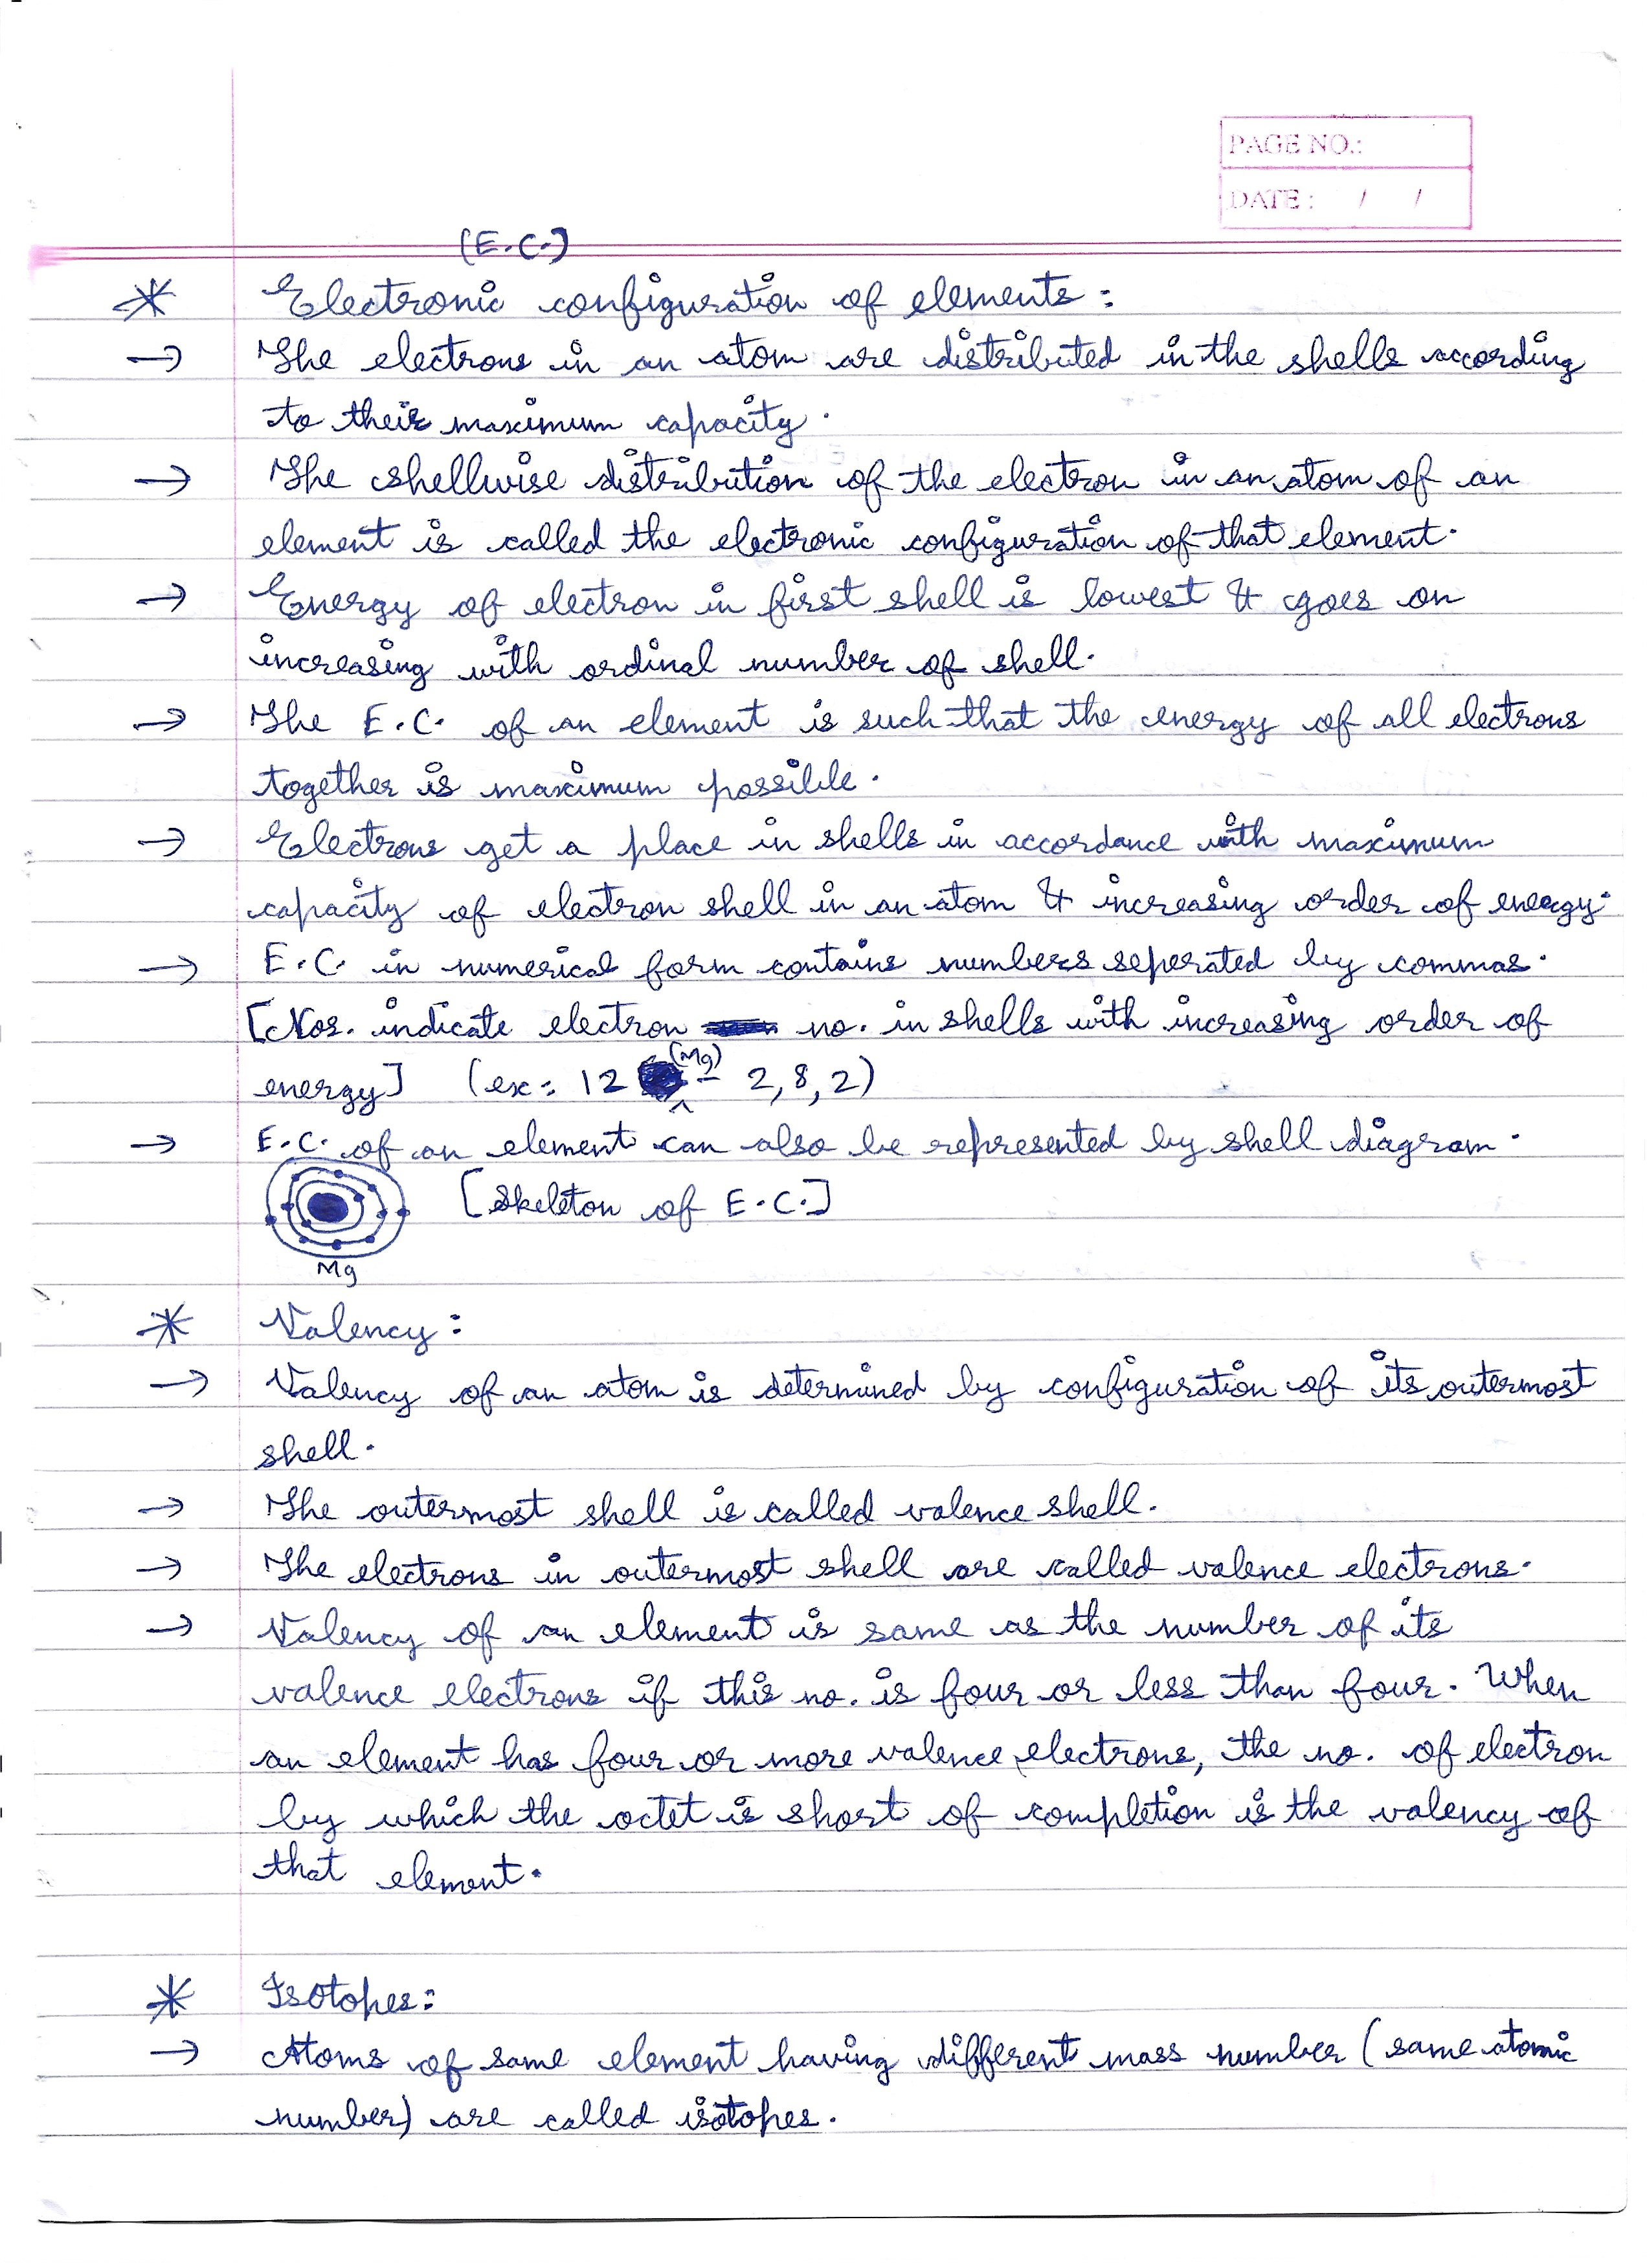 PAGE NO.:
DATE : / /
(E.C.)
* Electronic configuration of elements :
→ The electrons in an atom are distributed in the shells according
to their maximum capacity.
→ The shellwise distribution of the electron in an atom of an
element is called the electronic configuration of that element.
→ Energy of electron in first shell is lowest & goes on
increasing with ordinal number of shell.
→ The E.C. of an element is such that the energy of all electrons
together is maximum possible.
→ Electrons get a place in shells in accordance with maximum
capacity of electron shell in an atom & increasing order of energy.
→ E.C. in numerical form contains numbers seperated by commas.
[Nos. indicate electron no. in shells with increasing order of
energy] (ex: 12 (Mg) - 2, 8, 2)
→ E.C. of an element can also be represented by shell diagram.
[Skeleton of E.C.]
Mg
* Valency :
→ Valency of an atom is determined by configuration of its outermost
shell.
→ The outermost shell is called valence shell.
→ The electrons in outermost shell are called valence electrons.
→ Valency of an element is same as the number of its
valence electrons if this no. is four or less than four. When
an element has four or more valence electrons, the no. of electron
by which the octet is short of completion is the valency of
that element.
* Isotopes :
→ Atoms of same element having different mass number (same atomic
number) are called isotopes.